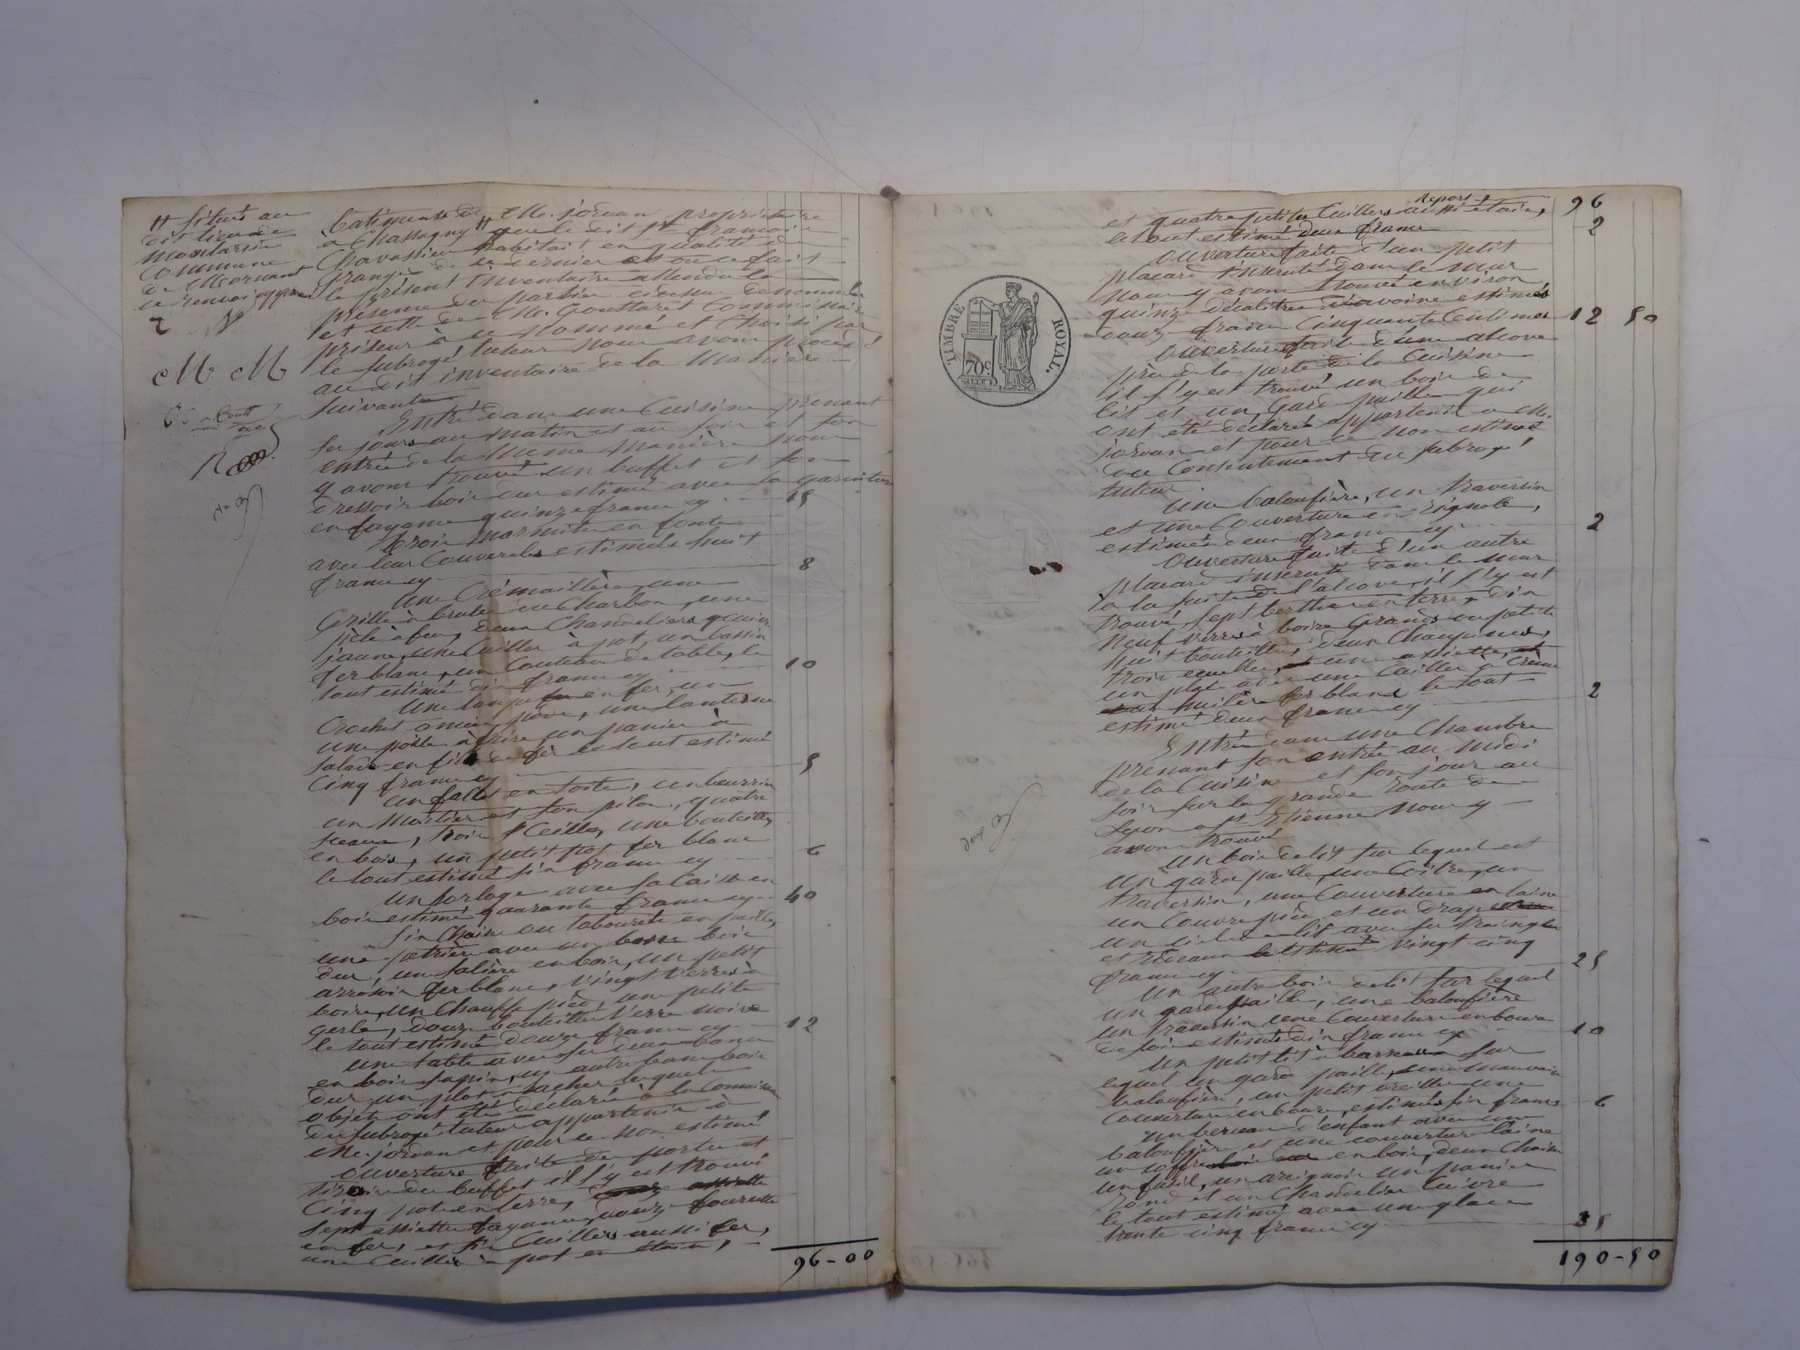 # situés au
dit lieu de
Montarsin
Commune
de Mornant
ce renvoi approuvé
M M
batiments de Mr. jordan, proprietaire
a Chassagny # que le dit st. francois
Chavassieu habitait en qualité de
Granger de ce dernier et ou ce fait
le présent inventaire attendu la
présence des parties ci dessus denommées
et celle de Mr. Gouttaret Commissaire
priseur à ce nommé et choisi par
le subrogé tuteur nous avons procédé
au dit inventaire de la manière
suivante
Entré dans une Cuisine prenant
ses jours au matin et au soir et son
entrée de la même manière nous
y avons trouvé un buffet et son
dressoir bois dur estimé avec sa garniture
en fayance quinze francs cy 15
trois marmites en fonte
avec leur Couvercles estimés huit
francs cy 8
une Crémaillère, une
Grille à bruler du Charbon, une
pèle à feu, deux Chandeliers cuivre
jaune, une Cuiller à pot, un bassin
fer blanc, un Couteau de table, le
tout estimé dix francs cy 10
une lampe en fer, un
Crochet à une pose, une lanterne
une poële à frire un panier à
salade en fil de fer le tout estimé
Cinq francs cy 5
un en tole, un
un Mortier et son pilon, quatre
sceaux, trois seilles, une bouteille
en bois, un petit pot fer blanc
le tout estimé six francs cy 6
un horloge avec sa Caisse en
bois estimé quarante francs cy 40
six Chaises ou tabourets en paille,
une petrière avec un bois
dur, une salière en bois, un petit
arrosoir fer blanc, vingt verres à
boire, un Chauffe pied, une petite
gerle, douze bouteilles verre noire
le tout estimé douze francs cy 12
une table avec ses deux bancs
en bois sapin, un autre banc bois
dur, un plot à hacher lesquels
objets ont été déclarés à la Connaissance
du subrogé tuteur appartenir à
Mr. jordan et pour ce non estimé
ouverture faite des portes et
tiroirs du buffet il s'y est trouvé
Cinq pots en terre,
sept assiettes fayance, douze fourchettes
en fer, et six Cuillers aussi fer,
une Cuiller à pot en étain,
96-00
Report 96
et quatre petites Cuillers aussi étain,
le tout estimé deux francs 2
Ouverture faite d'un petit
placard incrusté dans le mur
nous y avons trouvé environ
quinze décalitres d'avoine estimés
douze francs Cinquante Centimes 12 50
Ouverture faite d'une alcove
près de la porte de la Cuisine
il s'y est trouvé un bois de
lit et un Gardepaille qui
ont été déclarés appartenir a Mr.
jordan et pour ce non estimés
du Consentement du subrogé
tuteur
une baloufière, un traversin
et une Couverture en
estimés deux francs cy 2
Ouverture faite d'un autre
placard incrusté dans le mur
à la suite de l'alcove, il s'y est
trouvé sept berthes en terre, dix
neuf verres à boire Grands ou petits
huit bouteilles, deux
trois ecuelles, une assiette,
un plat avec une Cuiller à Crème
huilère fer blanc le tout
estimé deux francs cy 2
Entré dans une Chambre
prenant son entrée au midi
de la Cuisine et son jour au
soir sur la grande Route de
Lyon a st Etienne nous y
avons trouvé
un bois de lit sur lequel est
un garde paille, une Coitre, un
traversin, une Couverture en laine
un Couvre pied et un drap
un ciel de lit avec ses tringles
et rideaux estimé vingt cinq
francs cy 25
un autre bois de lit sur lequel
un garde paille, une baloufière
un traversin, une Couverture en bourre
de soie estimés dix francs cy 10
un petit lit à barreaux sur
lequel un garde paille, une mauvaise
baloufière, un petit oreiller une
Couverture en bourre, estimés six francs 6
un berceau d'enfant avec une
baloufière et une couverture laine
un coffre en bois, deux Chaises
un fusil, un un panier
rond et un Chandelier Cuivre
le tout estimé avec une glace
trente cinq francs cy 35
190-50
TIMBRE ROYAL.
70c.